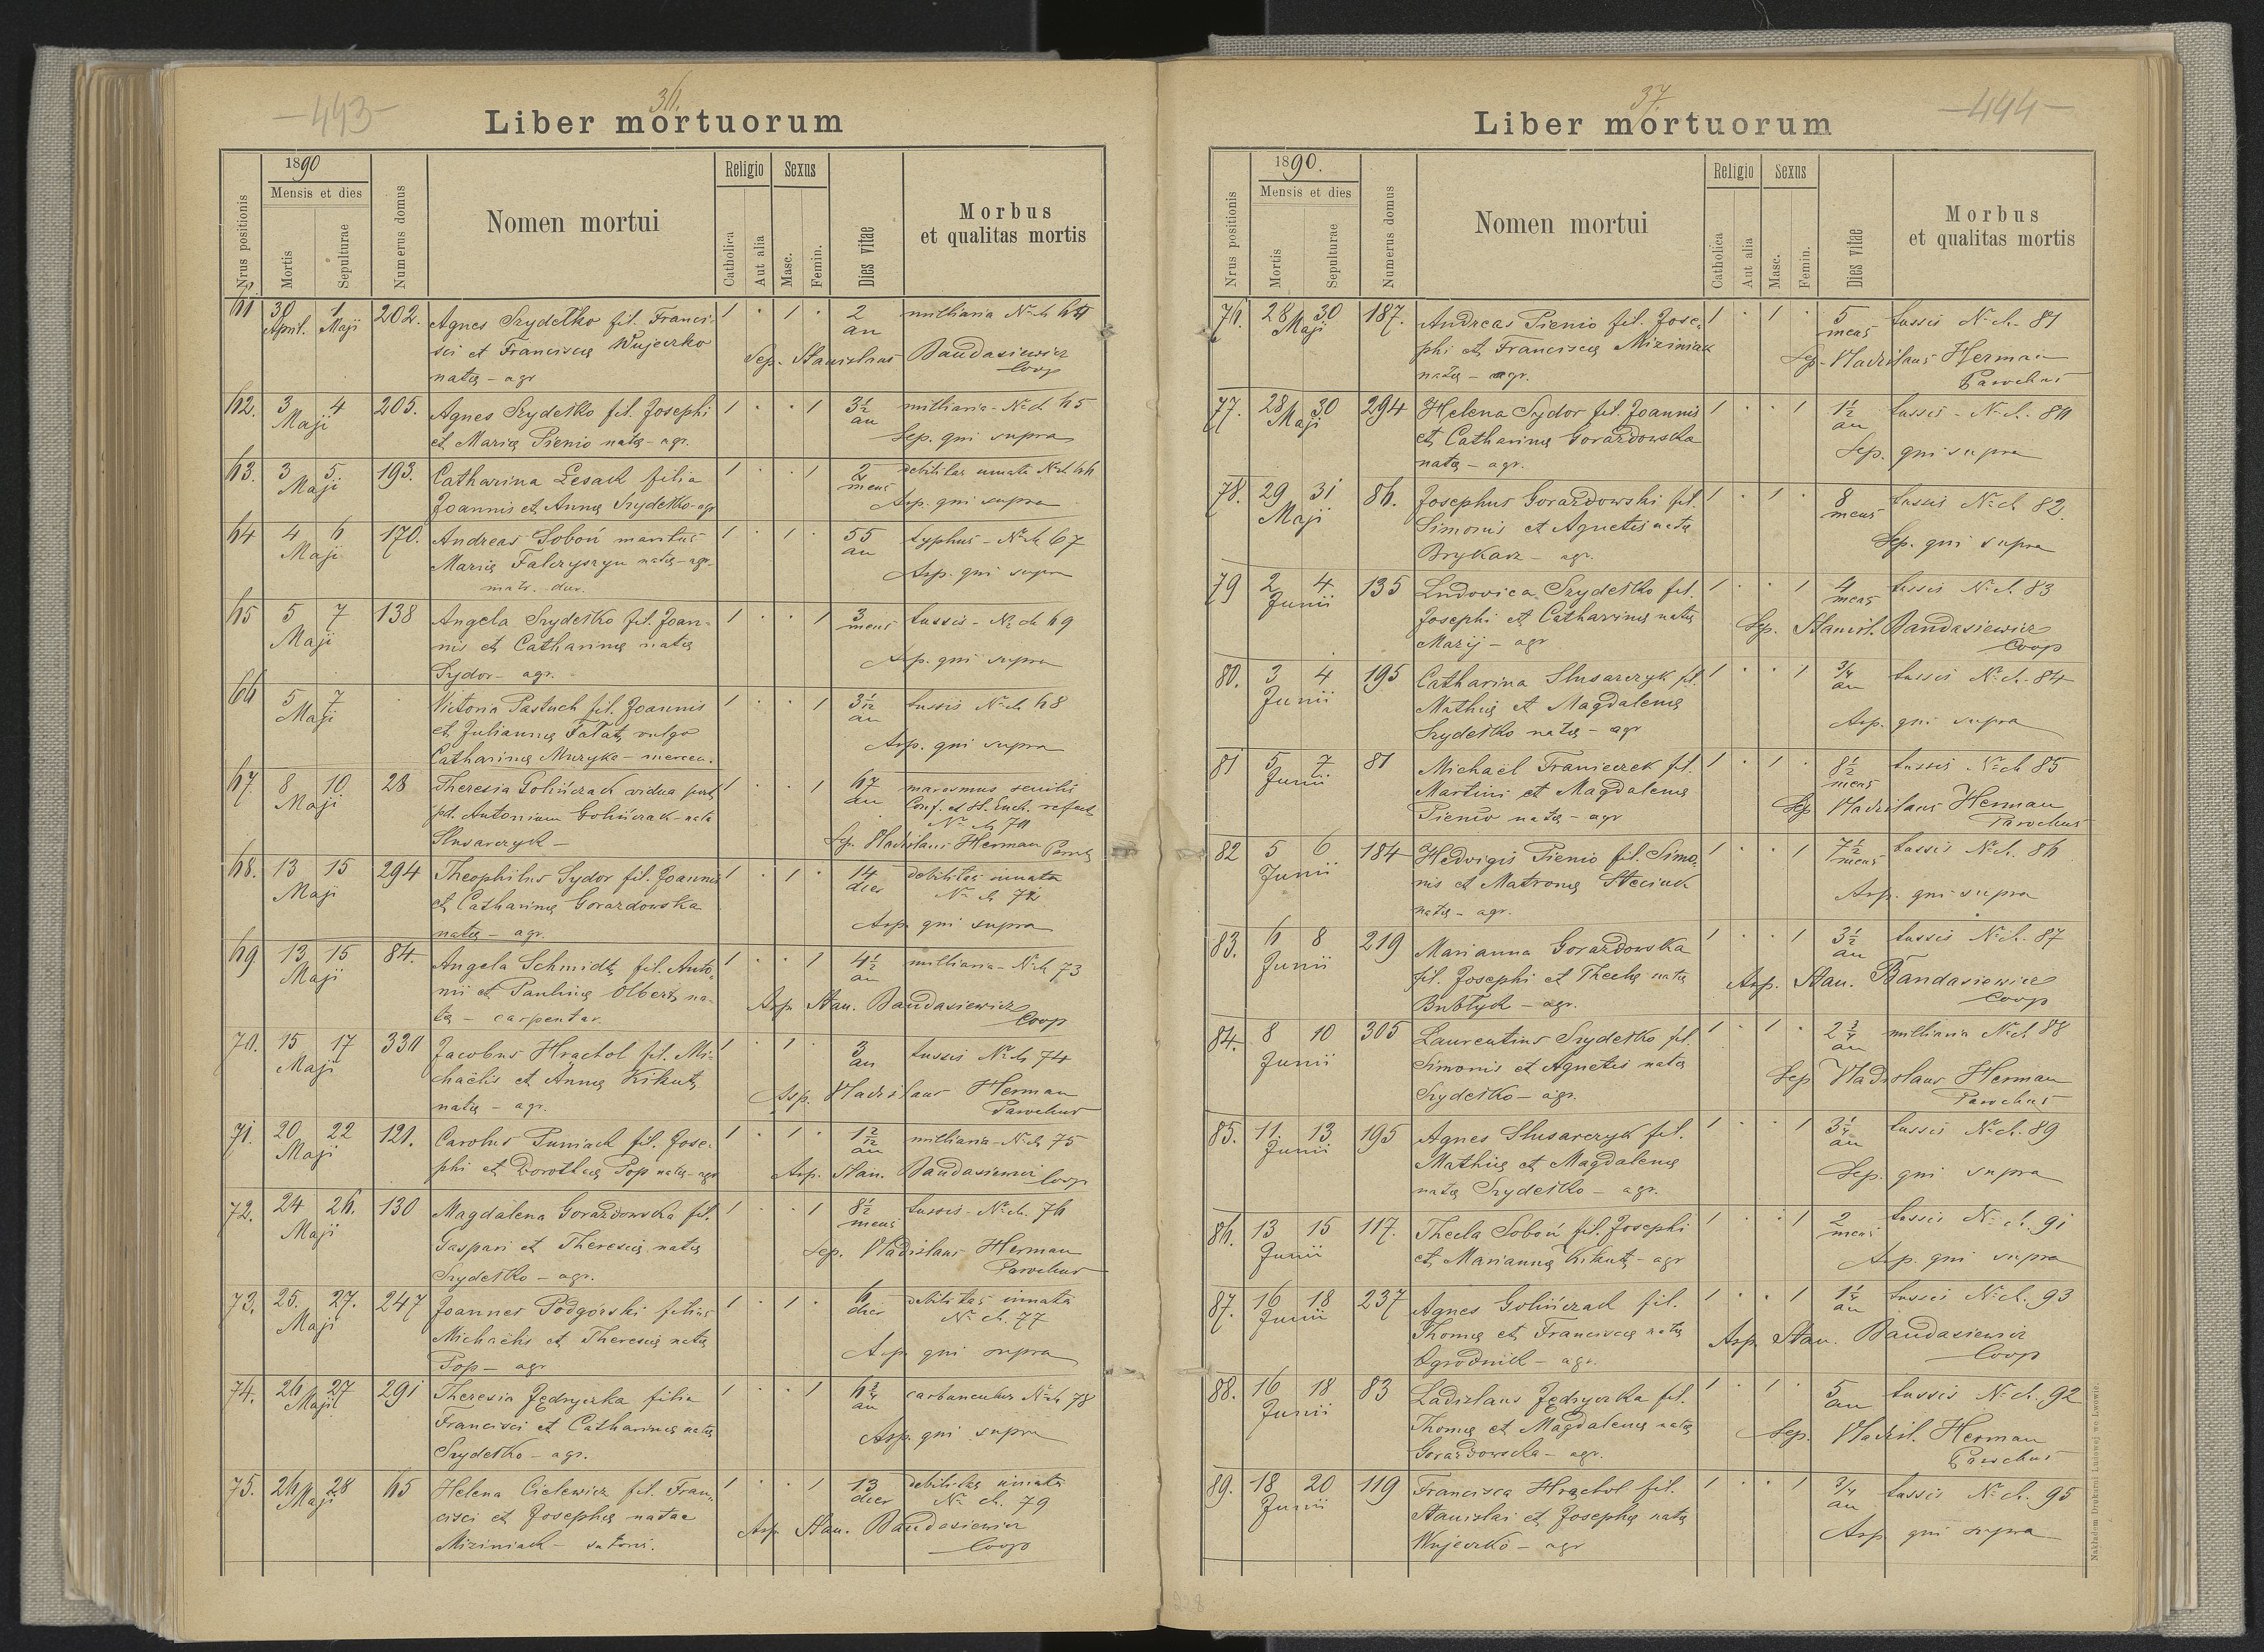 -493-
36.
Liber mortuorum
1890
Mensis et dies
Nrus positionis
Mortis
Sepulturae
Numerus domus
Nomen mortui
Religio
Catholica
Aut alia
Sexus
Masc.
Femin.
Dies vitae
Morbus
et qualitas mortis
61 30 April. 1 Maji 202. Agnes Szydełko fil. Franci- 1 · 1 · 2 an milliaria
sci et Franciscę Wujeczko Sep. Stanislaus Bandasiewicz
natę - agr coop
62. 3 4 Maji 205. Agnes Szydełko fil. Josephi 1 · · 1 3½ an milliaria - No ch 65
et Marię Pienio natę - agr. Sep. qui supra
63. 3 5. Maji 193. Catharina Lesack filia 1 · · 1 2 mens debilitas innata No ch 66
Joannis et Annę Szydełko - agr Sep. qui supra
64 4 6 Maji 170. Andreas Soboń maritus 1 · 1 · 55 an typhus - No ch 67
Marię Falczyszyn natę - agr. Sep. qui supra
matr. dur.
65 5 7 Maji 138 Angela Szydełko fil. Joan- 1 · · 1 3 mens tussis - No ch 69
nis et Catharinę natę Sep. qui supra
Sydor - agr.
66 5 7 Maji Victoria Pastuch fil. Joannis 1 · · 1 3 1/12 an tussis No ch 68
et Juliannę Fałat, vulgo Sep. qui supra
Catharinę Muzyka - mercen.
67. 8 10 Maji 28 Theresia Golińczak vidua post 1 · · 1 67 an marasmus senilis
pt. Antonium Golińczak - nata Conf. et St. Euch. refect
Slusarczyk - No ch 70
Sep. Vladislaus Herman Paroch
68. 13 15 Maji 294 Theophilus Sydor fil. Joannis 1 · 1 · 14 dies debilitas innata
et Catharinę Gorazdowska No ch 72
natę - agr. Sep. qui supra
69 13 15 Maji 84. Angela Schmidt, fil. Anto- 1 · · 1 4½ an milliaria - No ch 73
nii et Paulinę Olbert, na- Sep. Stan. Bandasiewicz
tę - carpentar. Coop
70. 15 17 Maji 330 Jacobus Hrachol fil. Mi- 1 · 1 · 3 an tussis No ch 74
chaëlis et Annę Kikut, Sep. Vladislaus Herman
natę - agr. Parochus
71. 20 22 Maji 121. Carolus Puniach fil. Jose- 1 · 1 · 1 2/12 an milliaria - No ch 75
phi et Dorotheę Pop natę - agr Sep. Stan. Bandasiewicz Coop
72. 24 26. Maji 130 Magdalena Gorazdowska fil. 1 · · 1 8½ mens tussis - No ch. 76
Gaspari et Theresię natę Sep. Vladislaus Herman
Szydełko - agr. Parochus
73. 25. 27. Maji 247 Joannes Podgórski filius 1 · 1 · 6 dier debilitas innata
Michaëlis et Theresię natę No ch. 77
Pop - agr Sep. qui supra
74. 26 27 Maji 291 Theresia Jędryczka filia 1 · · 1 an carbunculus No ch 78
Francisci et Catharinę natę Sep. qui supra
Szydełko - agr.
75. 26 28 Maji 65 Helena Cielewicz fil. Fran- 1 · · 1 13 dier debilitas innata
cisci et Josephę natae No ch. 79
Miziniach - sutoris. Sep. Stan. Bandasiewicz
Coop
-494-
37.
Liber mortuorum
1890.
Mensis et dies
Nrus positionis
Mortis
Sepulturae
Numerus domus
Nomen mortui
Religio
Catholica
Aut alia
Sexus
Masc.
Femin.
Dies vitae
Morbus
et qualitas mortis
76. 28 30 Maji 187. Andreas Pienio fil. Jose- 1 · 1 · 5 mens tussis No ch. 81
phi et Franciscę Miziniak Sep. Vladislaus Herman
natę - agr. Parochus
77. 28 30 Maji 294 Helena Sydor fil. Joannis 1 · · 1 1½ an tussis - No ch. 80
et Catharinę Gorazdowska Sep. qui supra
natę - agr.
78. 29 31 Maji 86. Josephus Gorazdowski fil. 1 · 1 · 8 mens tussis No ch 82.
Simonis et Agnetis natę Sep. qui supra
Brykacz - agr.
79 2 4 Junii 135 Ludovica Szydełko fil. 1 · · 1 4 mens tussis No ch. 83
Josephi et Catharinę natę Sep. Stanisl. Bandasiewicz
Mazij - agr Coop
80. 3 4 Junii 195 Catharina Slusarczyk fil. 1 · · 1 3/4 an tussis No ch. 84
Mathię et Magdalenę Sep. qui supra
Szydełko natę - agr
81 5 7 Junii 81 Michaël Franieczek fil. 1 · 1 · 8½ mens tussis No ch 85
Martini et Magdalenę Sep Vladislaus Herman
Pienio natę - agr Parochus
82 5 6 Junii 184 Hedvigis Pienio fil. Simo- 1 · · 1 7½ mens tussis No ch. 86
nis et Matronę Steciuk Sep. qui supra
natę - agr.
83. 6 8 Junii 219 Marianna Gorazdowska 1 · · 1 3½ an tussis No ch. 87
fil. Josephi et Theclę natę Sep. Stan. Bandasiewicz
Bubłyk - agr. Coop
84. 8 10 Junii 305 Laurentius Szydełko fil. 1 · 1 · an milliaria No ch 88
Simonis et Agnetis natę Sep Vladislaus Herman
Szydełko - agr. Parochus
85. 11. 13. Junii 195 Agnes Slusarczyk fil. 1 · · 1 an tussis No ch. 89
Mathię et Magdalenę Sep. qui supra
natę Szydełko - agr.
86. 13 15 Junii 117. Thecla Soboń fil. Josephi 1 · · 1 2 mens tussis No ch. 91
et Mariannę Kikut, - agr Sep. qui supra
87. 16 18 Junii 237 Agnes Golińczak fil. 1 · · 1 an tussis No ch. 93
Thomę et Franciscę natę Sep. Stan. Bandasiewicz
Ogrodnik - agr. Coop
88. 16 18 Junii 83 Ladislaus Jędryczka fil. 1 · 1 · 5 an tussis No ch. 92
Thomę et Magdalenę natę Sep. Vladisl. Herman
Gorazdowska - agr. Parochus
89. 18 20 Junii 119 Francisca Hrachol fil. 1 · · 1 3/4 an tussis No ch. 95
Stanislai et Josephę natę Sep. qui supra
Wujeczko - agr
Nakładem Drukarni Ludowej we Lwowie.